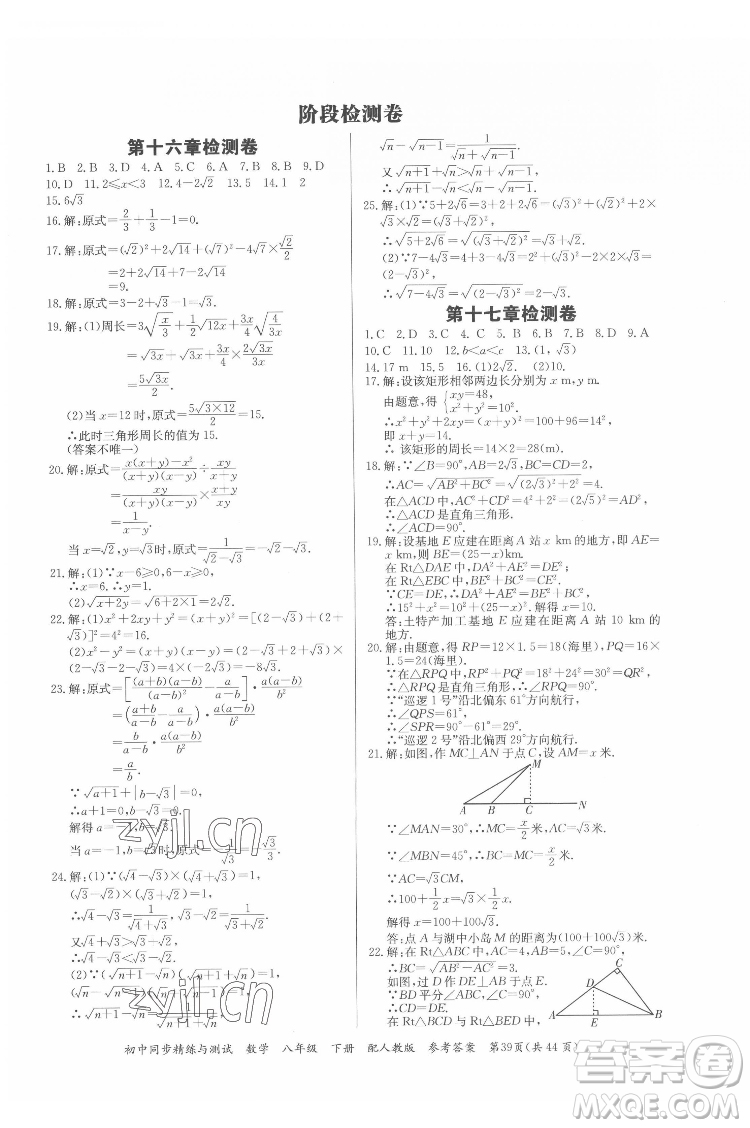 阶段检测卷
第十六章检测卷
1.B 2.B 3.D 4.A 5.C 6.C 7.B 8.B 9.D
10.D 11.2≤x<3 12.4-2√2 13.5 14.1 2
15.6√3
16.解:原式=2/3+1/3-1=0.
17.解:原式=(√2)²+2√14+(√7)²-4√7×√2/2
=2+2√14+7-2√14
=9.
18.解:原式=3-2+√3-1=√3.
19.解:(1)周长=3√(x/3)+1/2√(12x)+x√(4/3x)
(2)当x=12时,原式=5√(3×12)/2=15.
∴此时三角形周长的值为15.
(答案不唯一)
20.解:原式=[x(x+y)-x²]/[(x+y)(x-y)]÷xy/(x+y)
=xy/[(x+y)(x-y)]×(x+y)/xy
=1/(x-y).
当x=√2,y=√3时,原式=1/(√2-√3)
21.解:(1)∵x-6≥0,6-x≥0,
∴x=6.∴y=1.
(2)√(x+2y)=√(6+2×1)=2√2.
22.解:(1)x²+2xy+y²=(x+y)²=[(2-√3)+(2
+√3)]²=4²=16.
(2)x²-y²=(x+y)(x-y)=(2-√3+2+√3)(2-
√3-2-√3)=4×(-2√3)=-8√3.
23.解:原式=[(a+b)(a-b)/(a-b)²-a/(a-b)]·a(a-b)/b²
=((a+b)/(a-b)-a/(a-b))·a(a-b)/b²
=b/(a-b)·a(a-b)/b²
=a/b.
∵√(a+1)+|b-√3|=0,
∴a+1=0,b-√3=0.
解得a=-1,b=√3.
24.解:(1)∵(√4-√3)(√4+√3)=1,
(√3-√2)(√3+√2)=1,
∴√4-√3=1/(√4+√3),√3-√2=1/(√3+√2).
又√4+√3>√3+√2,
∴√4-√3<√3-√2.
(2)∵(√(n+1)-√n)(√(n+1)+√n)=1,
(√n-√(n-1))(√n+√(n-1))=1,
√n-√(n-1)=1/(√n+√(n-1)).
又√(n+1)+√n>√n+√(n-1),
∴√(n+1)-√n<√n-√(n-1).
25.解:(1)∵5+2√6=3+2+2√6=(√3)²+(√2)²+2
×√3×√2=(√3+√2)²,
∴√(5+2√6)=√((√3+√2)²)=√3+√2.
(2)∵7-4√3=4+3-4√3=2²+(√3)²-2×2
×√3=(2-√3)²,
∴√(7-4√3)=√((2-√3)²)=2-√3.
第十七章检测卷
1.C 2.D 3.C 4.A 5.C 6.A 7.B 8.D 9.A
10.C 11.10 12.b<a<c 13.(1,√3)
14.17 m 15.5 16.(√2)ⁿ
17.解:设该矩形相邻两边长分别为x m,y m.
由题意,得{xy=48,
x²+y²=10².
∴x²+y²+2xy=(x+y)²=100+96=196.
即x+y=14.
∴该矩形的周长=14×2=28(m).
18.解:∵∠B=90°,AB=2√3,BC=2,
∴AC=√(AB²+BC²)=√((2√3)²+2²)=4.
在△ACD中,AC²+CD²=4²+2²=(2√5)²=AD²,
∴△ACD是直角三角形.
∴∠ACD=90°.
19.解:设基地E应建在距离A站x km的地方,即AE=
x km,则BE=(25-x)km.
在Rt△DAE中,DA²+AE²=DE²,
在Rt△EBC中,BE²+BC²=CE².
∵CE=DE,∴DA²+AE²=BE²+BC².
∴15²+x²=10²+(25-x)².解得x=10.
答:土特产加工基地E应建在距离A站10 km的
地方.
20.解:由题意,得RP=12×1.5=18(海里),PQ=16×
1.5=24(海里).
∴在△RPQ中,RP²+PQ²=18²+24²=30²=RQ².
∴△RPQ是直角三角形,∠RPQ=90°.
∵“巡逻1号”沿北偏东61°方向航行,
∴∠QPS=61°,
∴∠SPR=90°-61°=29°.
∴“巡逻2号”沿北偏西29°方向航行.
21.解:如图,作MC⊥AN于点C,设AM=x米.
M
A B C N
∵∠MAN=30°,∴MC=x/2米,AC=√3/2x米.
∵∠MBN=45°,∴BC=MC=x/2米.
∵AC=√3/2x,
∴100+1/2x=√3/2x.
解得x=100+100√3.
答:点A与湖中小岛M的距离为(100+100√3)米.
22.解:在Rt△ABC中,∠C=90°,
∴BC=√(AB²-AC²)=6.
如图,过点D作DE⊥AB于点E.
∵BD平分∠ABC,∠C=90°,
∴CD=DE.
C
D
A E B
初中同步精练与测试 数学 八年级 下册 配人教版 参考答案 第39页(共44页)
zyjl.cn
zyjl.cn
作业精灵